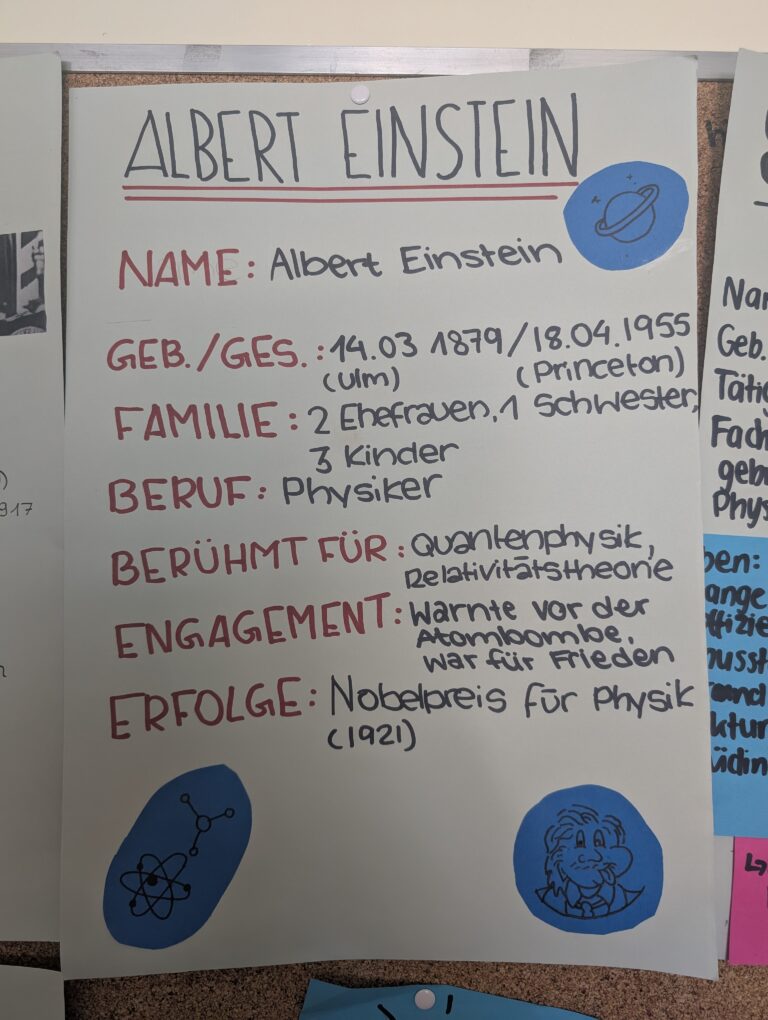 ALBERT EINSTEIN
NAME: Albert Einstein
GEB./GES.: 14.03 1879/18.04.1955
(Ulm) (Princeton)
FAMILIE: 2 Ehefrauen, 1 Schwester,
3 Kinder
BERUF: Physiker
BERÜHMT FÜR: Quantenphysik,
Relativitätstheorie
ENGAGEMENT: Warnte vor der
Atombombe,
war für Frieden
ERFOLGE: Nobelpreis für Physik
(1921)
917
Nar
Geb.
Tätig
Fach
gebu
Phys
ben:
ange
ffizie
musst
ktur
üdin